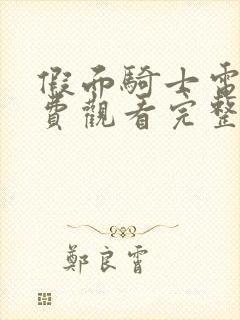 假面騎士電
費觀看完整
鄭良霄